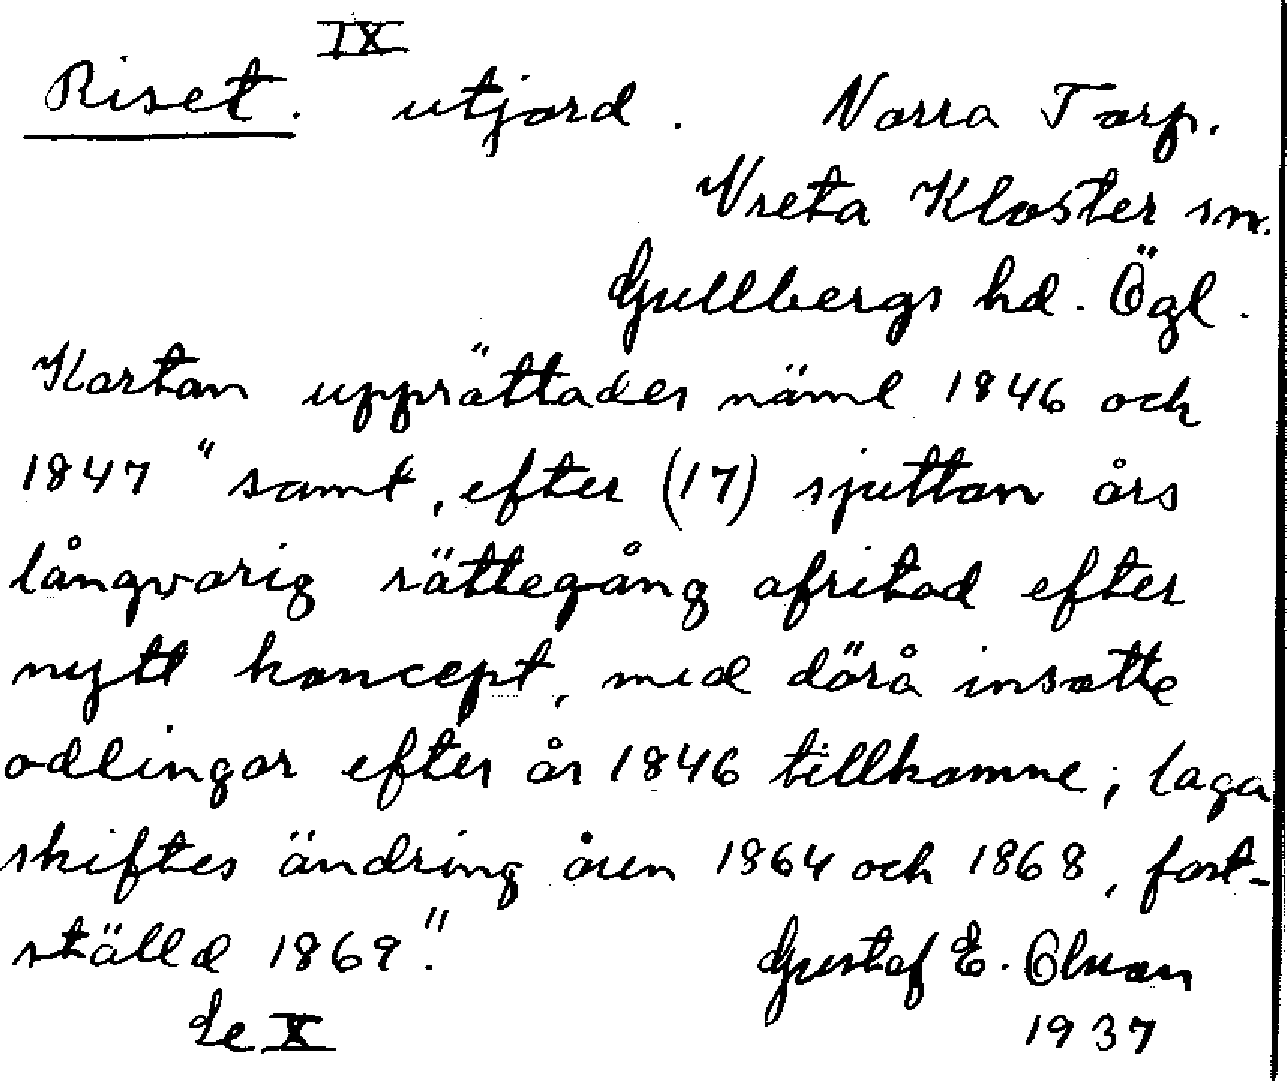 IX
Riset. utjord. Norra Torp.
Vreta Kloster sn.
Gullbergs hd. Ögl.
Kartan upprättades näml 1846 och
1847 "samt, efter (17) sjuttan års
långvarig rättegång afritad efter
nytt koncept, med därå insatte
odlingar efter år 1846 tillkomne, laga
skiftes ändring åren 1864 och 1868, fast-
ställd 1869."
Gustaf E. Olsson
Se X
1937